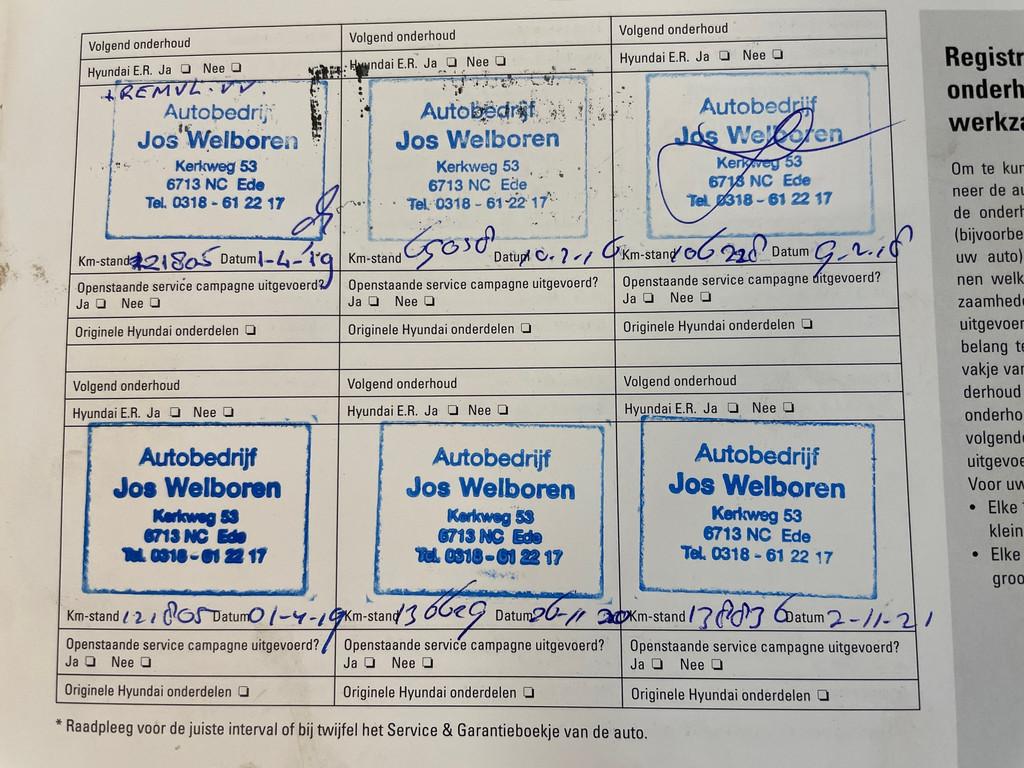 Volgend onderhoud
Hyundai E.R. Ja ☐ Nee ☐
+REMVL. VV.
Autobedrijf
Jos Welboren
Kerkweg 53
6713 NC Ede
Tel. 0318 - 61 22 17
Km-stand 121805 Datum 1-4-'19
Openstaande service campagne uitgevoerd?
Ja ☐ Nee ☐
Originele Hyundai onderdelen ☐
Volgend onderhoud
Hyundai E.R. Ja ☐ Nee ☐
Autobedrijf
Jos Welboren
Kerkweg 53
6713 NC Ede
Tel. 0318 - 61 22 17
Km-stand Datum
Openstaande service campagne uitgevoerd?
Ja ☐ Nee ☐
Originele Hyundai onderdelen ☐
Volgend onderhoud
Hyundai E.R. Ja ☐ Nee ☐
Autobedrijf
Jos Welboren
Kerkweg 53
6713 NC Ede
Tel. 0318 - 61 22 17
Km-stand 106228 Datum 9-2-18
Openstaande service campagne uitgevoerd?
Ja ☐ Nee ☐
Originele Hyundai onderdelen ☐
Volgend onderhoud
Hyundai E.R. Ja ☐ Nee ☐
Autobedrijf
Jos Welboren
Kerkweg 53
6713 NC Ede
Tel. 0318 - 61 22 17
Km-stand 121805 Datum 01-4-19
Openstaande service campagne uitgevoerd?
Ja ☐ Nee ☐
Originele Hyundai onderdelen ☐
Volgend onderhoud
Hyundai E.R. Ja ☐ Nee ☐
Autobedrijf
Jos Welboren
Kerkweg 53
6713 NC Ede
Tel. 0318 - 61 22 17
Km-stand 136629 Datum 26-11 20
Openstaande service campagne uitgevoerd?
Ja ☐ Nee ☐
Originele Hyundai onderdelen ☐
Volgend onderhoud
Hyundai E.R. Ja ☐ Nee ☐
Autobedrijf
Jos Welboren
Kerkweg 53
6713 NC Ede
Tel. 0318 - 61 22 17
Km-stand 138836 Datum 2-11-21
Openstaande service campagne uitgevoerd?
Ja ☐ Nee ☐
Originele Hyundai onderdelen ☐
* Raadpleeg voor de juiste interval of bij twijfel het Service & Garantieboekje van de auto.
Registr
onderh
werkza
Om te kun
neer de au
de onderh
(bijvoorbe
uw auto)
nen welk
zaamhede
uitgevoer
belang te
vakje van
derhoud
onderho
volgende
uitgevoe
Voor uw
• Elke
klein
• Elke
groo